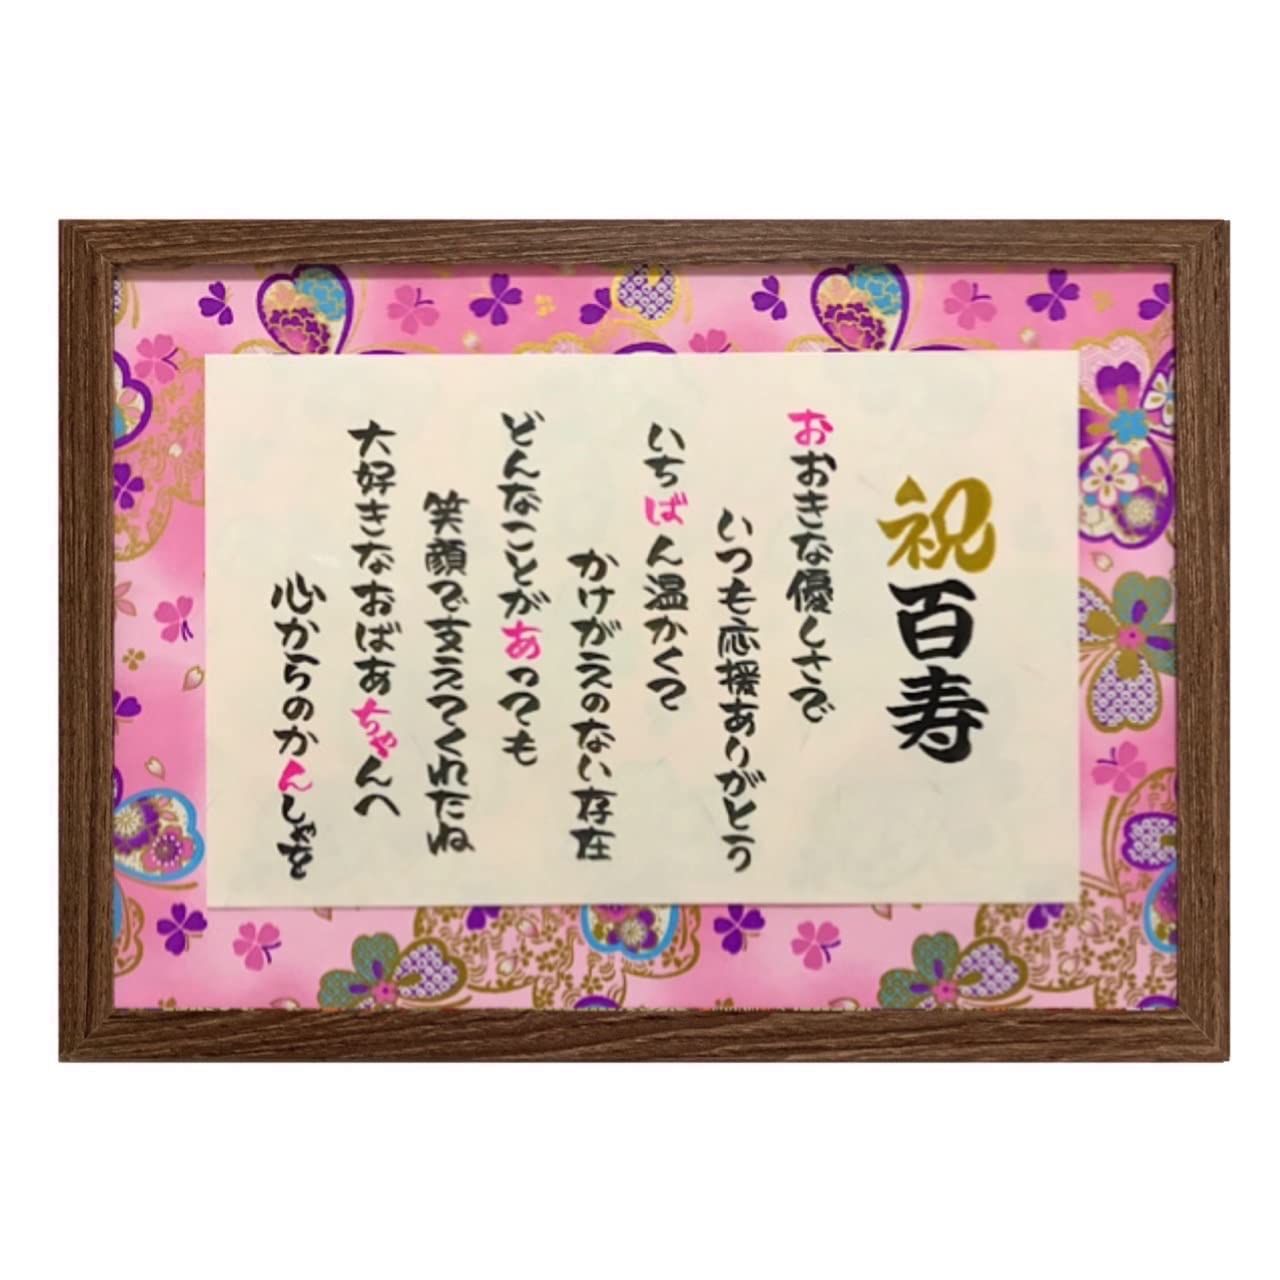 祝百寿
おおきな優しさで
いつも応援ありがとう
いちばん温かくて
かけがえのない存在
どんなことがあっても
笑顔で支えてくれたね
大好きなおばあちゃんへ
心からのかんしゃを